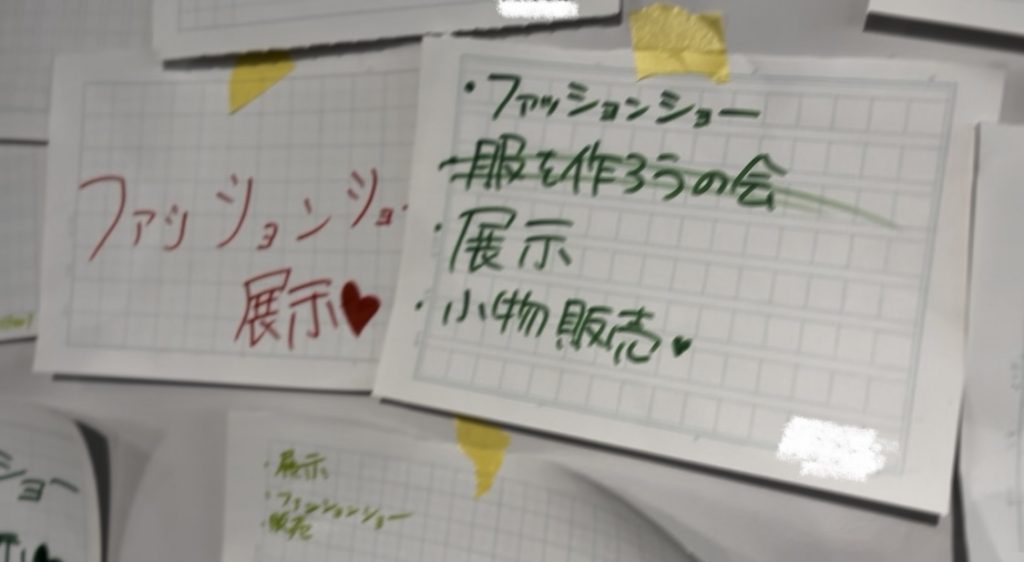 ファッションショ
展示♥
・ファッションショー
服を作ろうの会
・展示
・小物販売♥
・展示
・ファッションショー
・販売
ショー